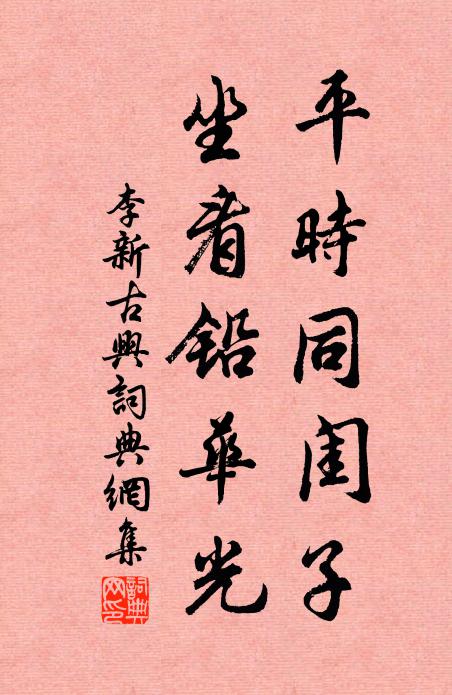 平時同闺子
坐看铅華光
李新古興詞典網集
詞典網印